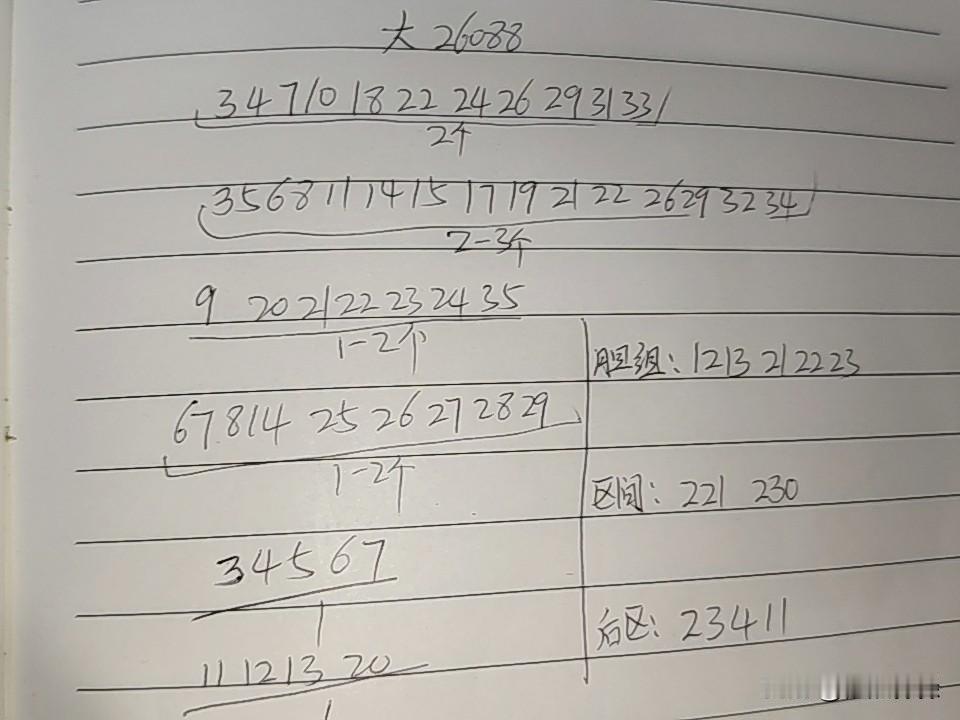 大 26088
3 4 7 10 18 22 24 26 29 31 33
2个
3 5 6 8 11 14 15 17 19 21 22 26 29 32 34
2-3个
9 20 21 22 23 24 35
1-2个
胆组: 12 13 21 22 23
6 7 8 14 25 26 27 28 29
1-2个
区间: 221 230
3 4 5 6 7
1
后区: 2 3 4 11
11 12 13 20
1